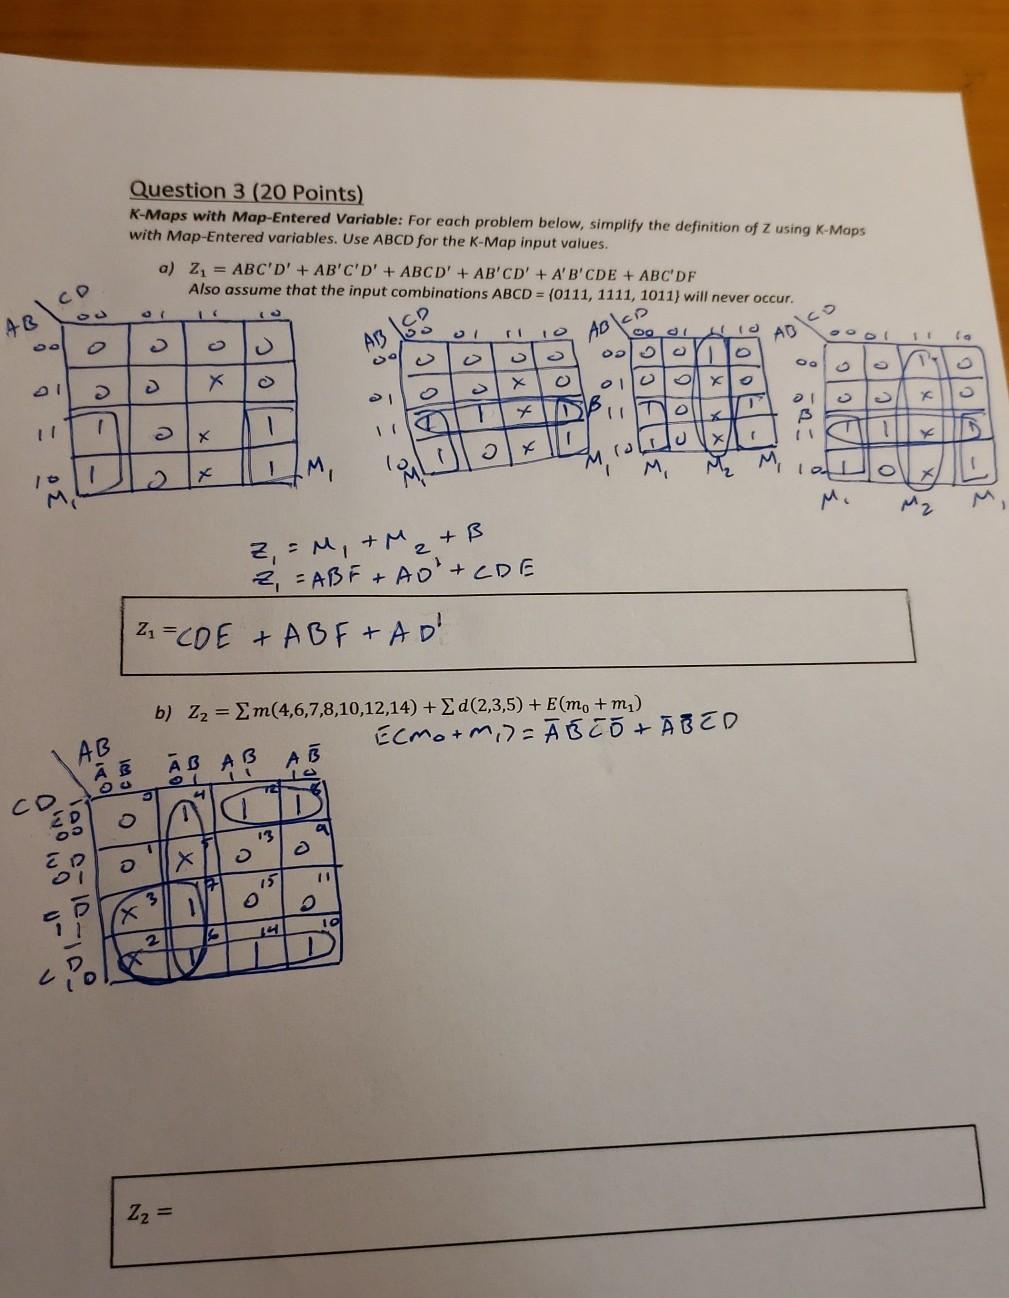 Question 3 (20 Points)
K-Maps with Map-Entered Variable: For each problem below, simplify the definition of Z using K-Maps
with Map-Entered variables. Use ABCD for the K-Map input values.
a) Z₁ = ABC'D' + AB'C'D' + ABCD' + AB'CD' + A'B'CDE + ABC'DF
Also assume that the input combinations ABCD = {0111, 1111, 1011} will never occur.
CD
AB 00 01 11 10
00 0 0 0 0
01 0 0 x 0
11 1 0 x 1
10 1 0 x 1
M₁ M₁
CD
AB 00 01 11 10
00 0 0 0 0
01 0 0 x 0
11 1 1 x 1 B
10 1 0 x 1
M₁ M₁
CD
AB 00 01 11 10
00 0 0 1 0
01 0 0 x 0
11 1 0 x 1
10 1 0 x 1
M₁ M₂ M₁
CD
AB 00 01 11 10
00 0 0 1 0
01 0 0 x 0
B
11 1 1 x 1
10 1 0 x 1
M₁ M₂ M₁
Z₁ = M₁ + M₂ + B
Z₁ = ABF + AD' + CDE
Z₁ = CDE + ABF + AD'
b) Z₂ = ∑m(4,6,7,8,10,12,14) + ∑d(2,3,5) + E(m₀ + m₁)
E(m₀ + m₁) = A̅B̅C̅D̅ + A̅B̅C̅D
AB
A̅ B̅ A̅ B A B A B̅
00 01 11 10
CD
C̅D̅ 00 0 0 1 4 1 12 1 8
C̅ D 01 0 1 x 5 0 13 0 9
11 x 3 1 7 0 15 0 11
C D̅ 10 x 2 1 6 1 14 1 10
Z₂ =